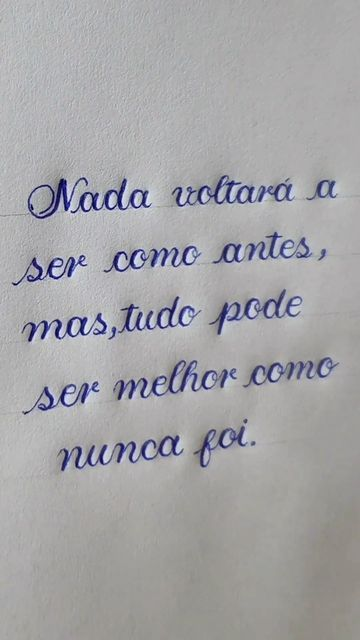 Nada voltará a
ser como antes,
mas,tudo pode
ser melhor como
nunca foi.